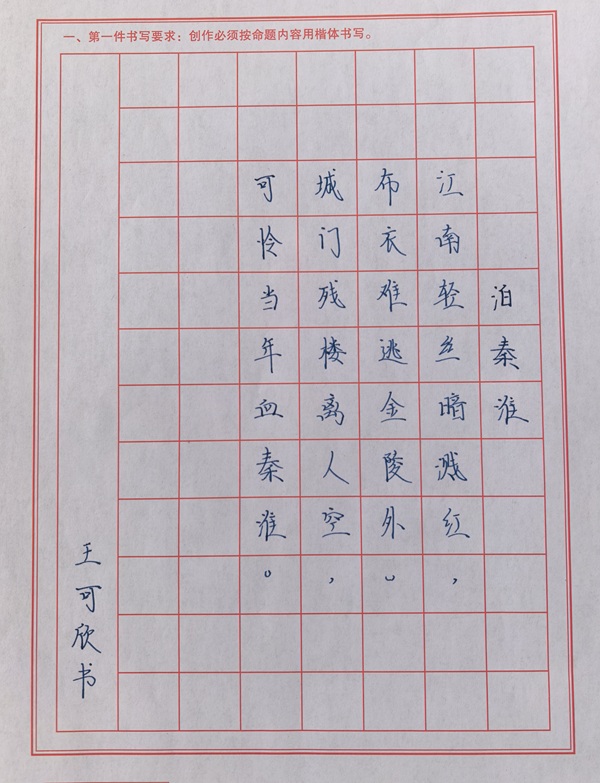 一、第一件书写要求：创作必须按命题内容用楷体书写。
泊秦淮
江南轻丝暗溅红，
布衣难逃金陵外。
城门残楼离人空，
可怜当年血秦淮。
王可欣书